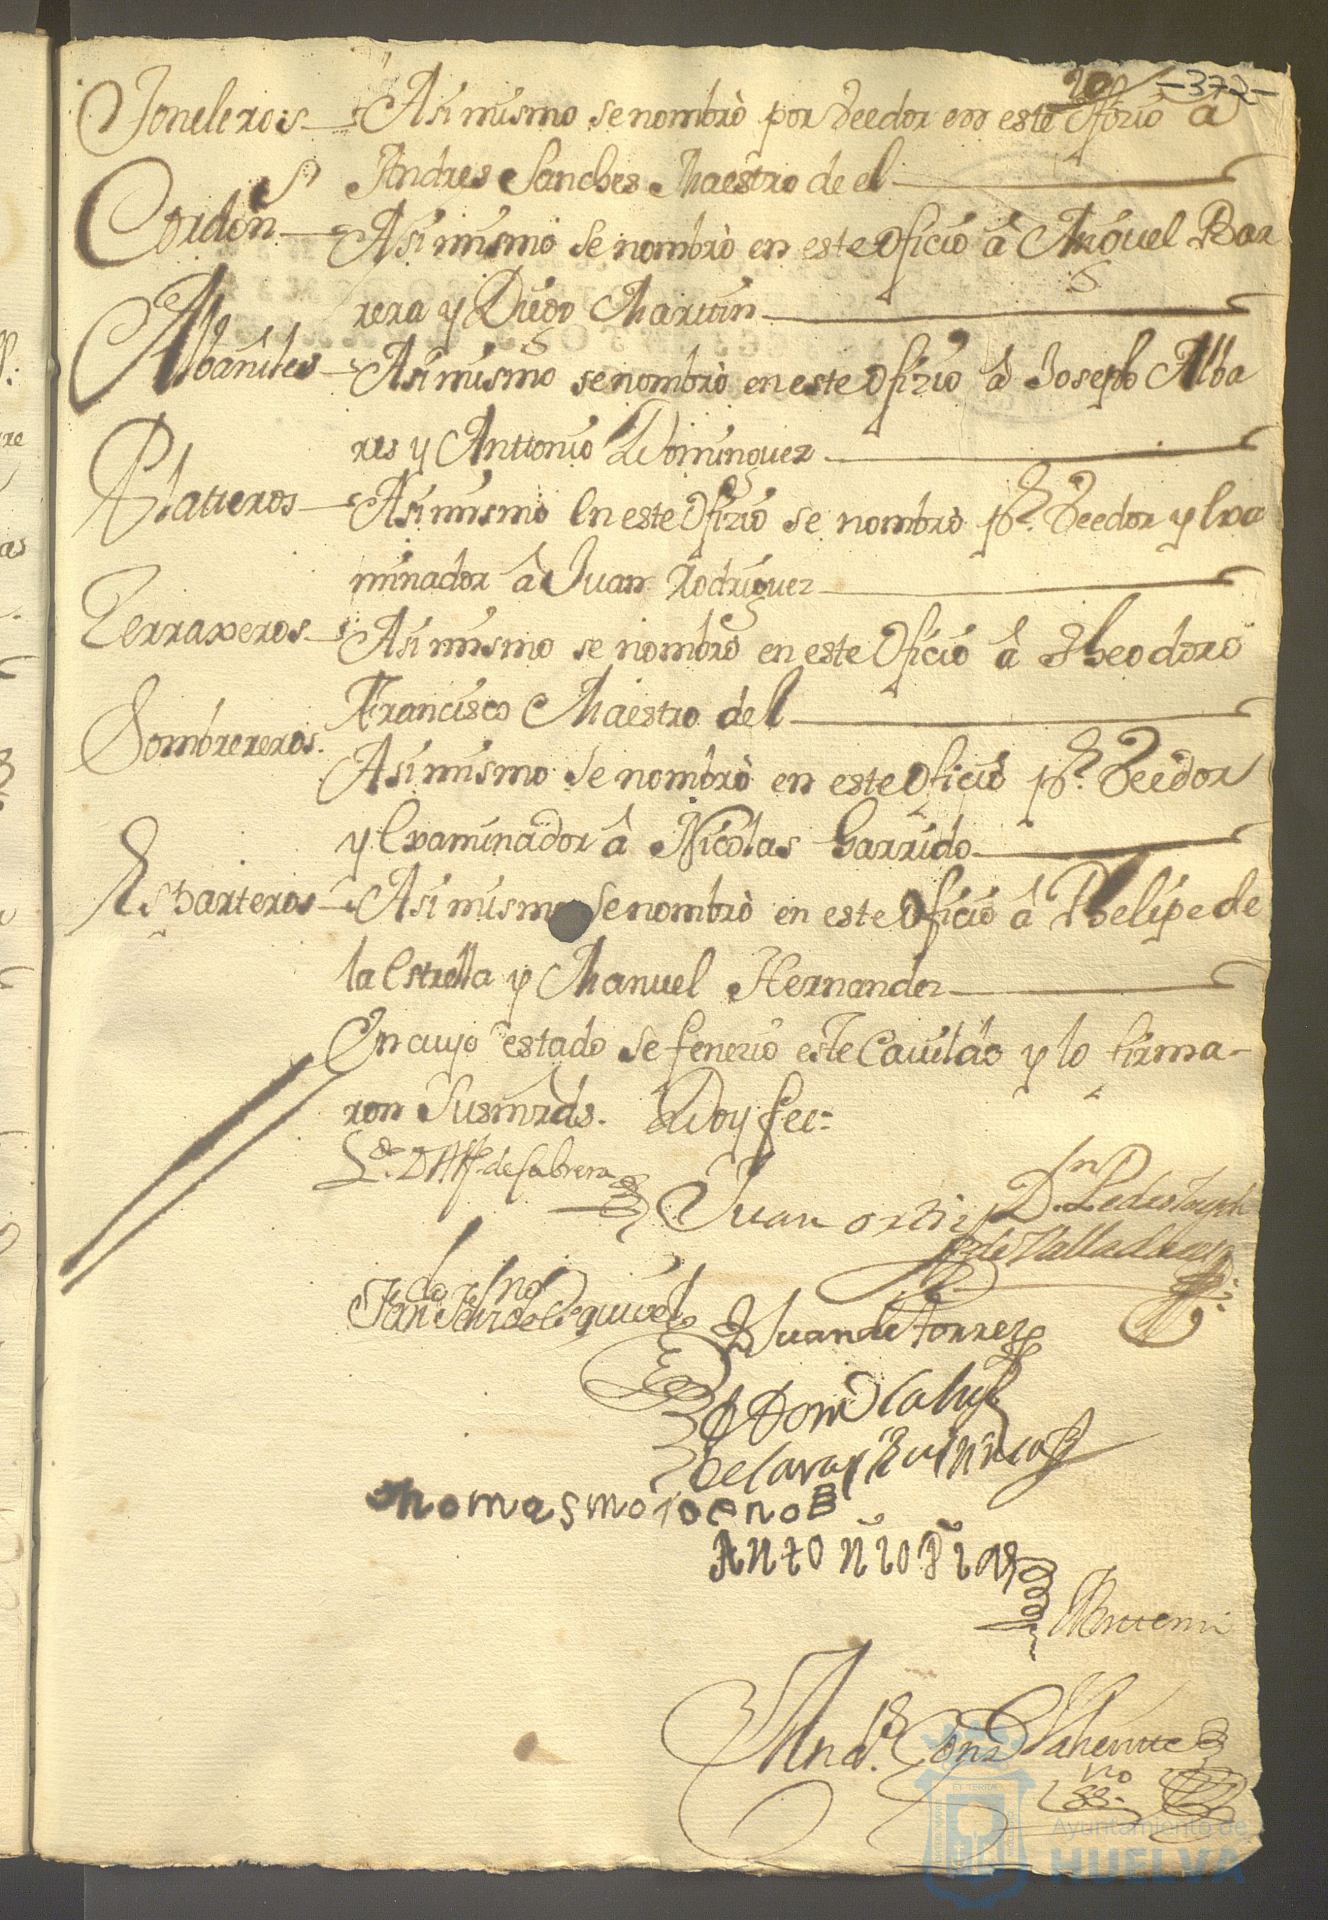 20 -372-
Toneleros - Asimismo se nombrò por Veedor en este Ofizio a
Andres Sanches Maestro de el
Cordon - Asimismo se nombrò en este Oficio â Miguel Bar
rera y Diego Martin
Albañiles - Asimismo se nombrò en este Ofizio â Joseph Alba
res y Anttonio Dominguez
Platteros - Asimismo En este Ofizio se nombrò pr. Veedor y Exa
minador â Juan Rodriguez
Zerraxeros - Asimismo se nombrò en este Oficio â Theodoro
Francisco Maestro del
Sombrereros. Asimismo se nombrò en este Oficio pr. Veedor
y Examinador â Nicolas Garrido
Esparteros - Asimismo se nombrò en este Oficio â Phelipe de
la Estrella y Manuel Hernandez
En cuyo estado se fenezio este Cavildo y lo firma-
ron Susmrds. Doy fee=
Ldo. D Alf. de Cabrera
Juan ortiz
Dn. Pedro Joseph
de Valladares
Franco de Esquivel
Juan de Torres
Thomas moreno
Antoñio Dias
Antemi
Andr. Gonz Valiente
Ayuntamiento de
HUELVA